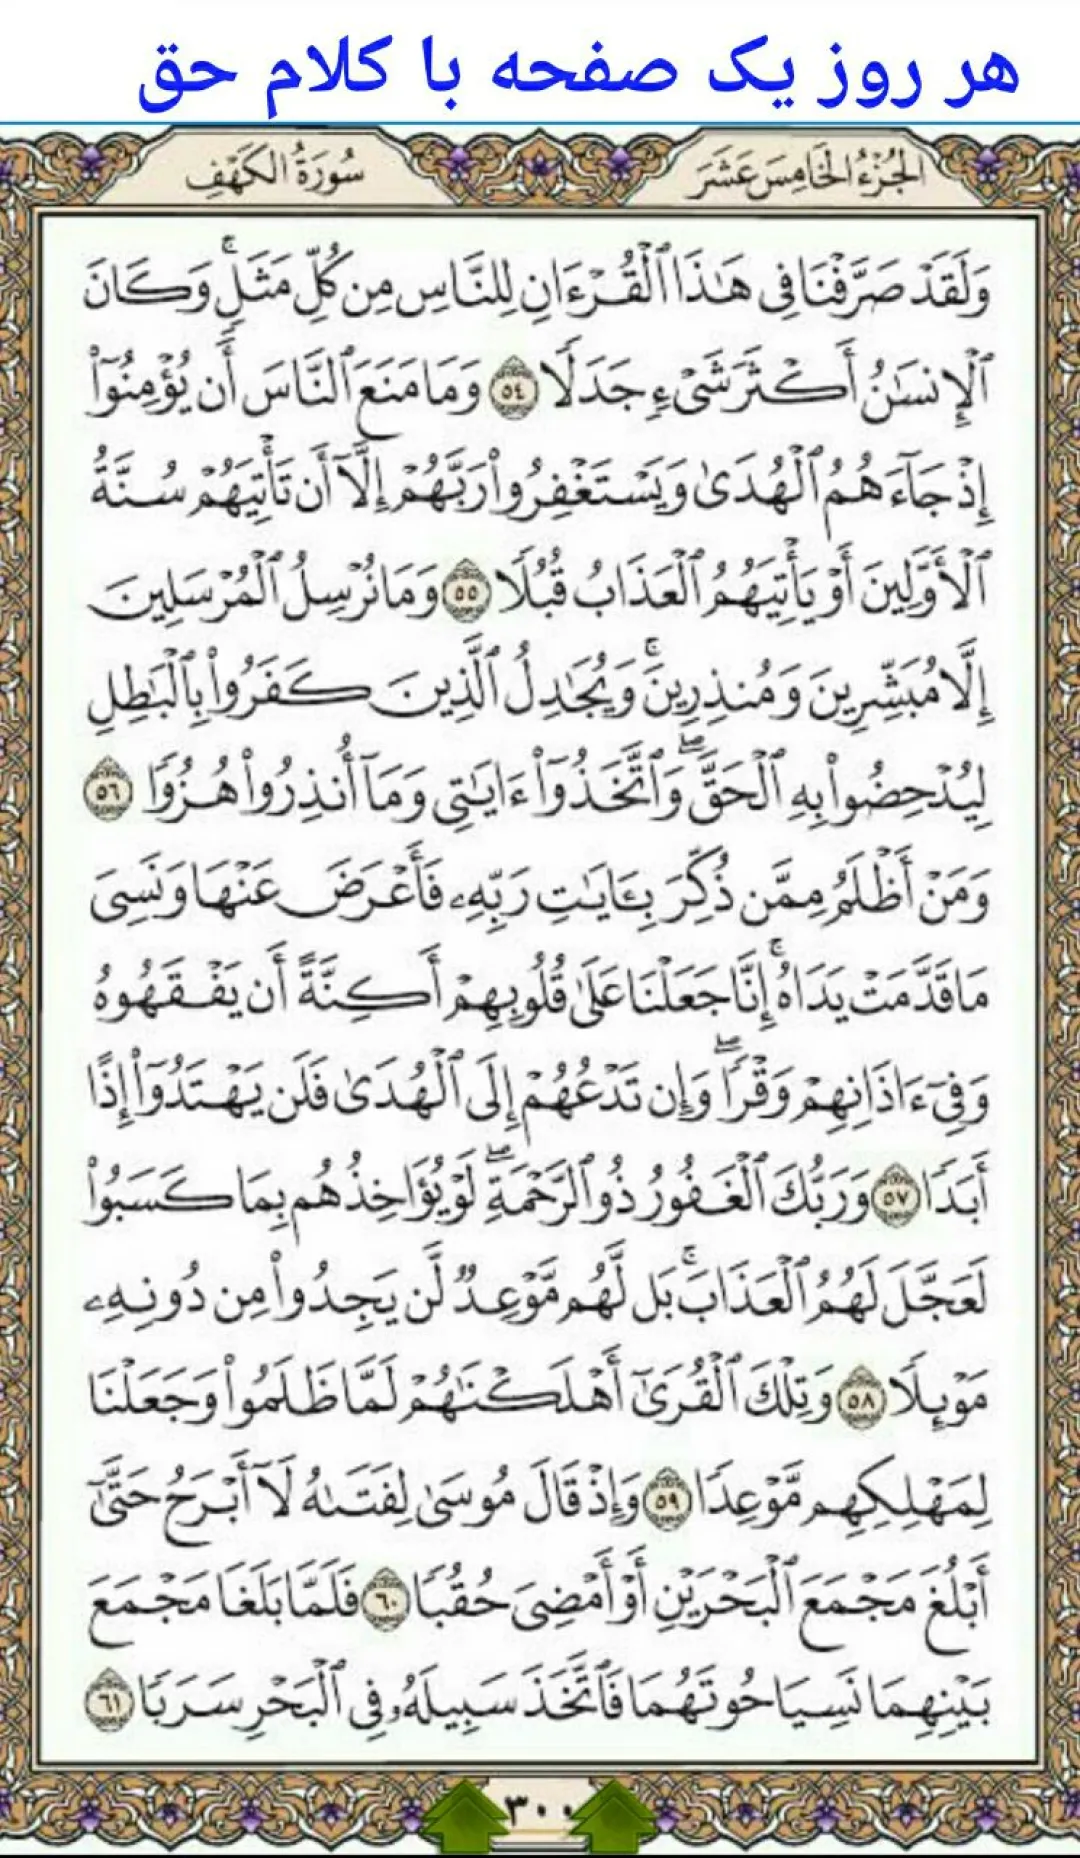 هر روز یک صفحه با کلام حق
الجُزْءُ الخَامِسَ عَشَرَ
سُورَةُ الكَهْفِ
وَلَقَدْ صَرَّفْنَا فِى هَٰذَا ٱلْقُرْءَانِ لِلنَّاسِ مِن كُلِّ مَثَلٍۚ وَكَانَ
ٱلْإِنسَٰنُ أَكْثَرَ شَىْءٍ جَدَلًا ٥٤ وَمَا مَنَعَ ٱلنَّاسَ أَن يُؤْمِنُوٓا۟
إِذْ جَآءَهُمُ ٱلْهُدَىٰ وَيَسْتَغْفِرُوا۟ رَبَّهُمْ إِلَّآ أَن تَأْتِيَهُمْ سُنَّةُ
ٱلْأَوَّلِينَ أَوْ يَأْتِيَهُمُ ٱلْعَذَابُ قُبُلًا ٥٥ وَمَا نُرْسِلُ ٱلْمُرْسَلِينَ
إِلَّا مُبَشِّرِينَ وَمُنذِرِينَۚ وَيُجَٰدِلُ ٱلَّذِينَ كَفَرُوا۟ بِٱلْبَٰطِلِ
لِيُدْحِضُوا۟ بِهِ ٱلْحَقَّۖ وَٱتَّخَذُوٓا۟ ءَايَٰتِى وَمَآ أُنذِرُوا۟ هُزُوًا ٥٦
وَمَنْ أَظْلَمُ مِمَّن ذُكِّرَ بِـَٔايَٰتِ رَبِّهِۦ فَأَعْرَضَ عَنْهَا وَنَسِىَ
مَا قَدَّمَتْ يَدَاهُۚ إِنَّا جَعَلْنَا عَلَىٰ قُلُوبِهِمْ أَكِنَّةً أَن يَفْقَهُوهُ
وَفِىٓ ءَاذَانِهِمْ وَقْرًاۖ وَإِن تَدْعُهُمْ إِلَى ٱلْهُدَىٰ فَلَن يَهْتَدُوٓا۟ إِذًا
أَبَدًا ٥٧ وَرَبُّكَ ٱلْغَفُورُ ذُو ٱلرَّحْمَةِۖ لَوْ يُؤَاخِذُهُم بِمَا كَسَبُوا۟
لَعَجَّلَ لَهُمُ ٱلْعَذَابَۚ بَل لَّهُم مَّوْعِدٌ لَّن يَجِدُوا۟ مِن دُونِهِۦ
مَوْئِلًا ٥٨ وَتِلْكَ ٱلْقُرَىٰٓ أَهْلَكْنَٰهُمْ لَمَّا ظَلَمُوا۟ وَجَعَلْنَا
لِمَهْلِكِهِم مَّوْعِدًا ٥٩ وَإِذْ قَالَ مُوسَىٰ لِفَتَىٰهُ لَآ أَبْرَحُ حَتَّىٰٓ
أَبْلُغَ مَجْمَعَ ٱلْبَحْرَيْنِ أَوْ أَمْضِىَ حُقُبًا ٦٠ فَلَمَّا بَلَغَا مَجْمَعَ
بَيْنِهِمَا نَسِيَا حُوتَهُمَا فَٱتَّخَذَ سَبِيلَهُۥ فِى ٱلْبَحْرِ سَرَبًا ٦١
٣٠٠